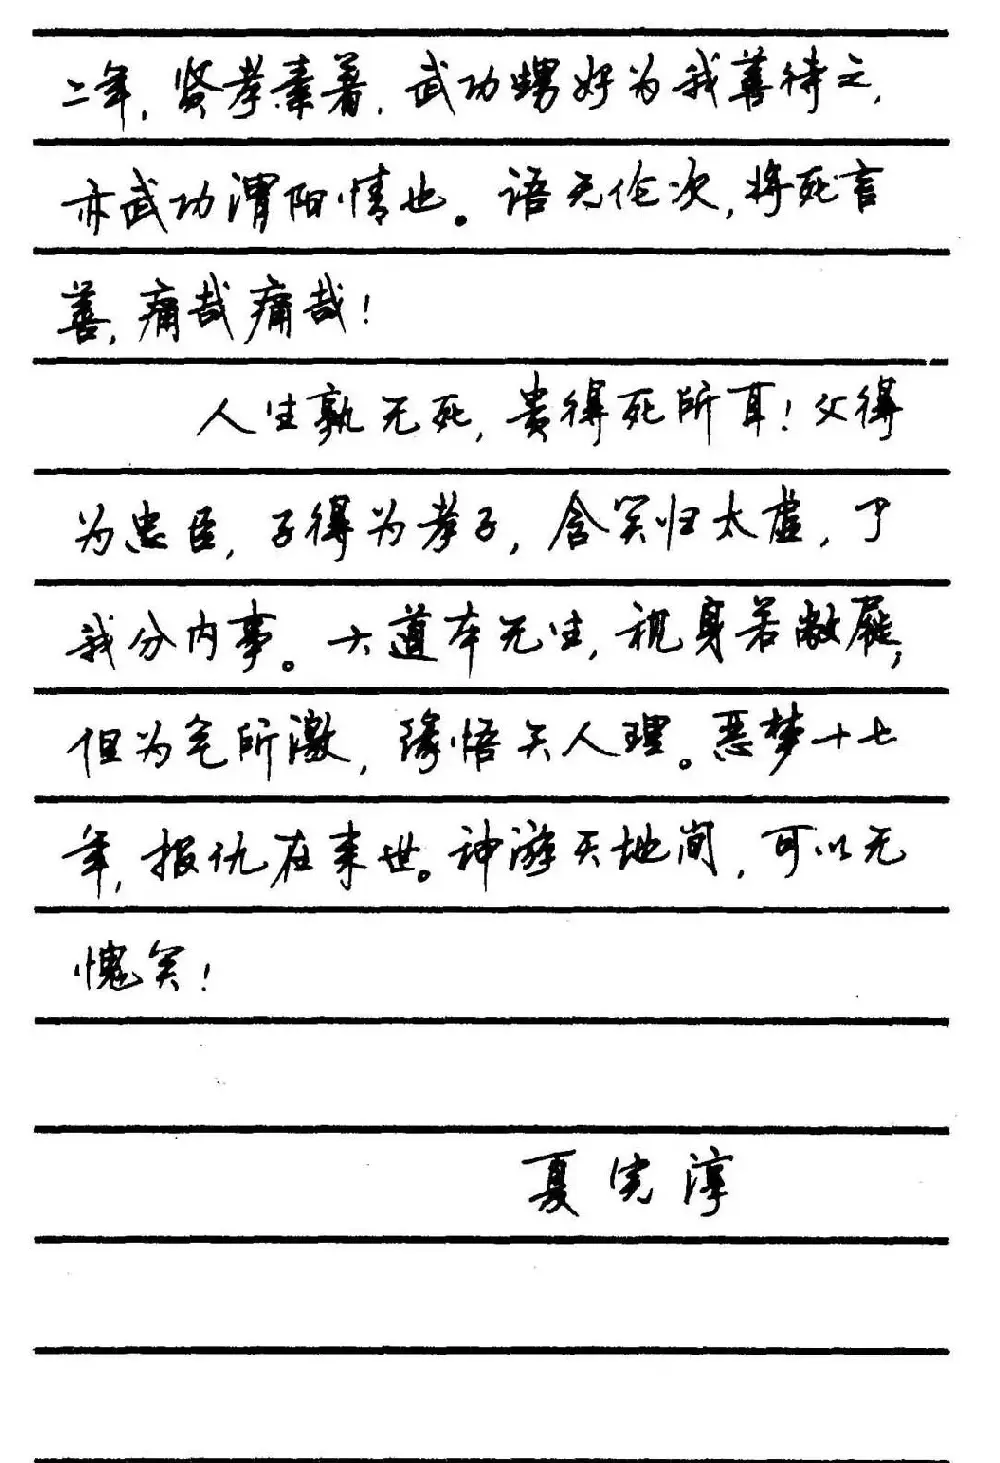 二年，贤孝素著，武功甥好为我善待之，
亦武功渭阳情也。语无伦次，将死言
善，痛哉痛哉！
人生孰无死，贵得死所耳！父得
为忠臣，子得为孝子，含笑归太虚，了
我分内事。大道本无生，视身若敝屣，
但为气所激，缘悟天人理。恶梦十七
年，报仇在来世。神游天地间，可以无
愧矣！
夏完淳